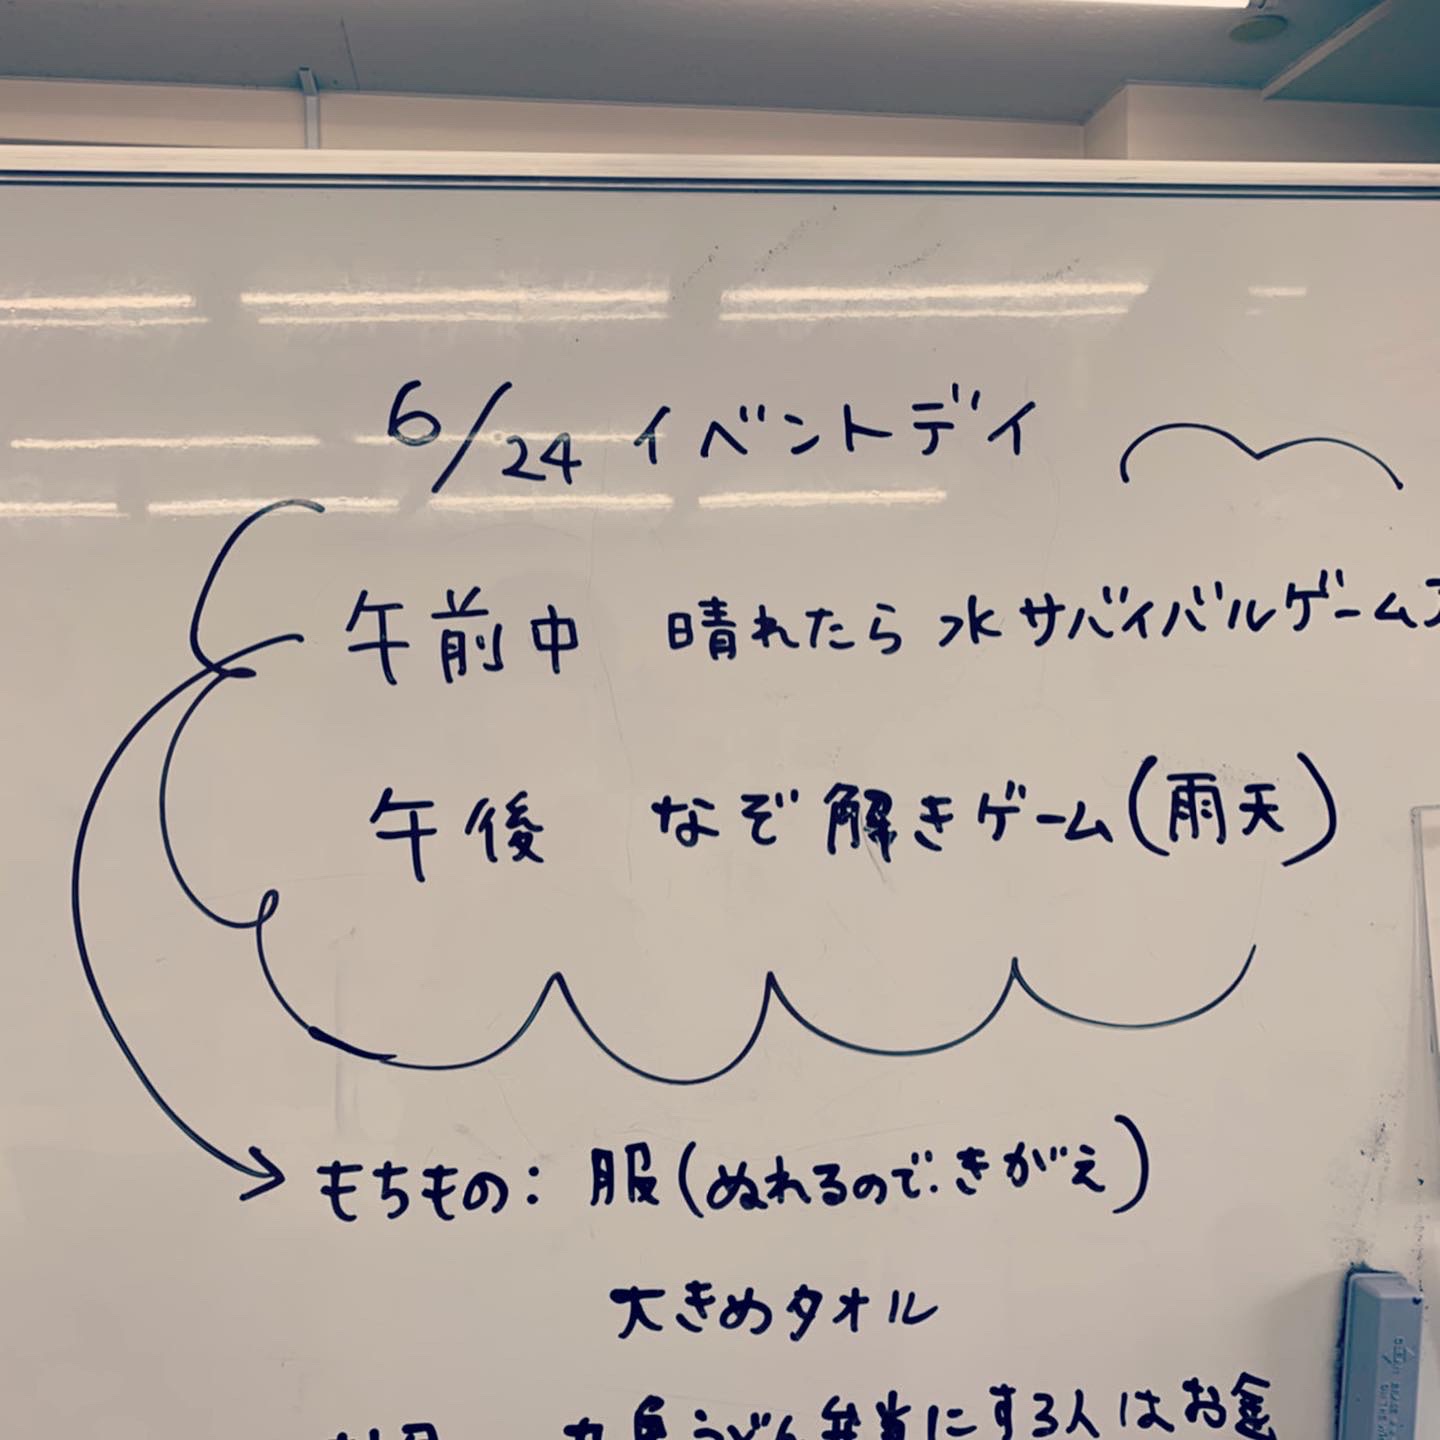 6/24 イベントデイ
午前中 晴れたら水サバイバルゲーム
午後 なぞ解きゲーム(雨天)
もちもの: 服(ぬれるので.きがえ)
大きめタオル
丸亀うどん弁当にする人はお金